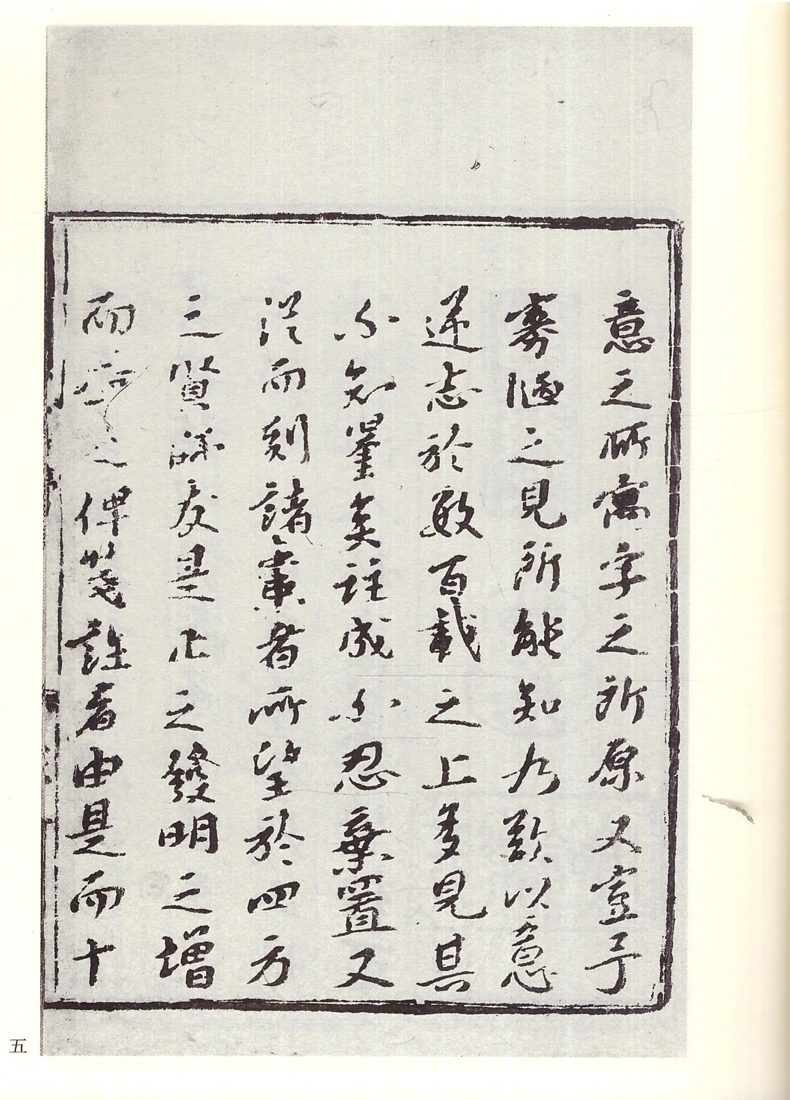 意之所寓字之所原又豈予
寡陋之見所能知乃欲以意
逆志於數百載之上多見其
不知量矣註成不忍棄置又
從而刻諸棗者所望於四方
之賢師友是正之發明之增
而之俾箋註者由是而十
五